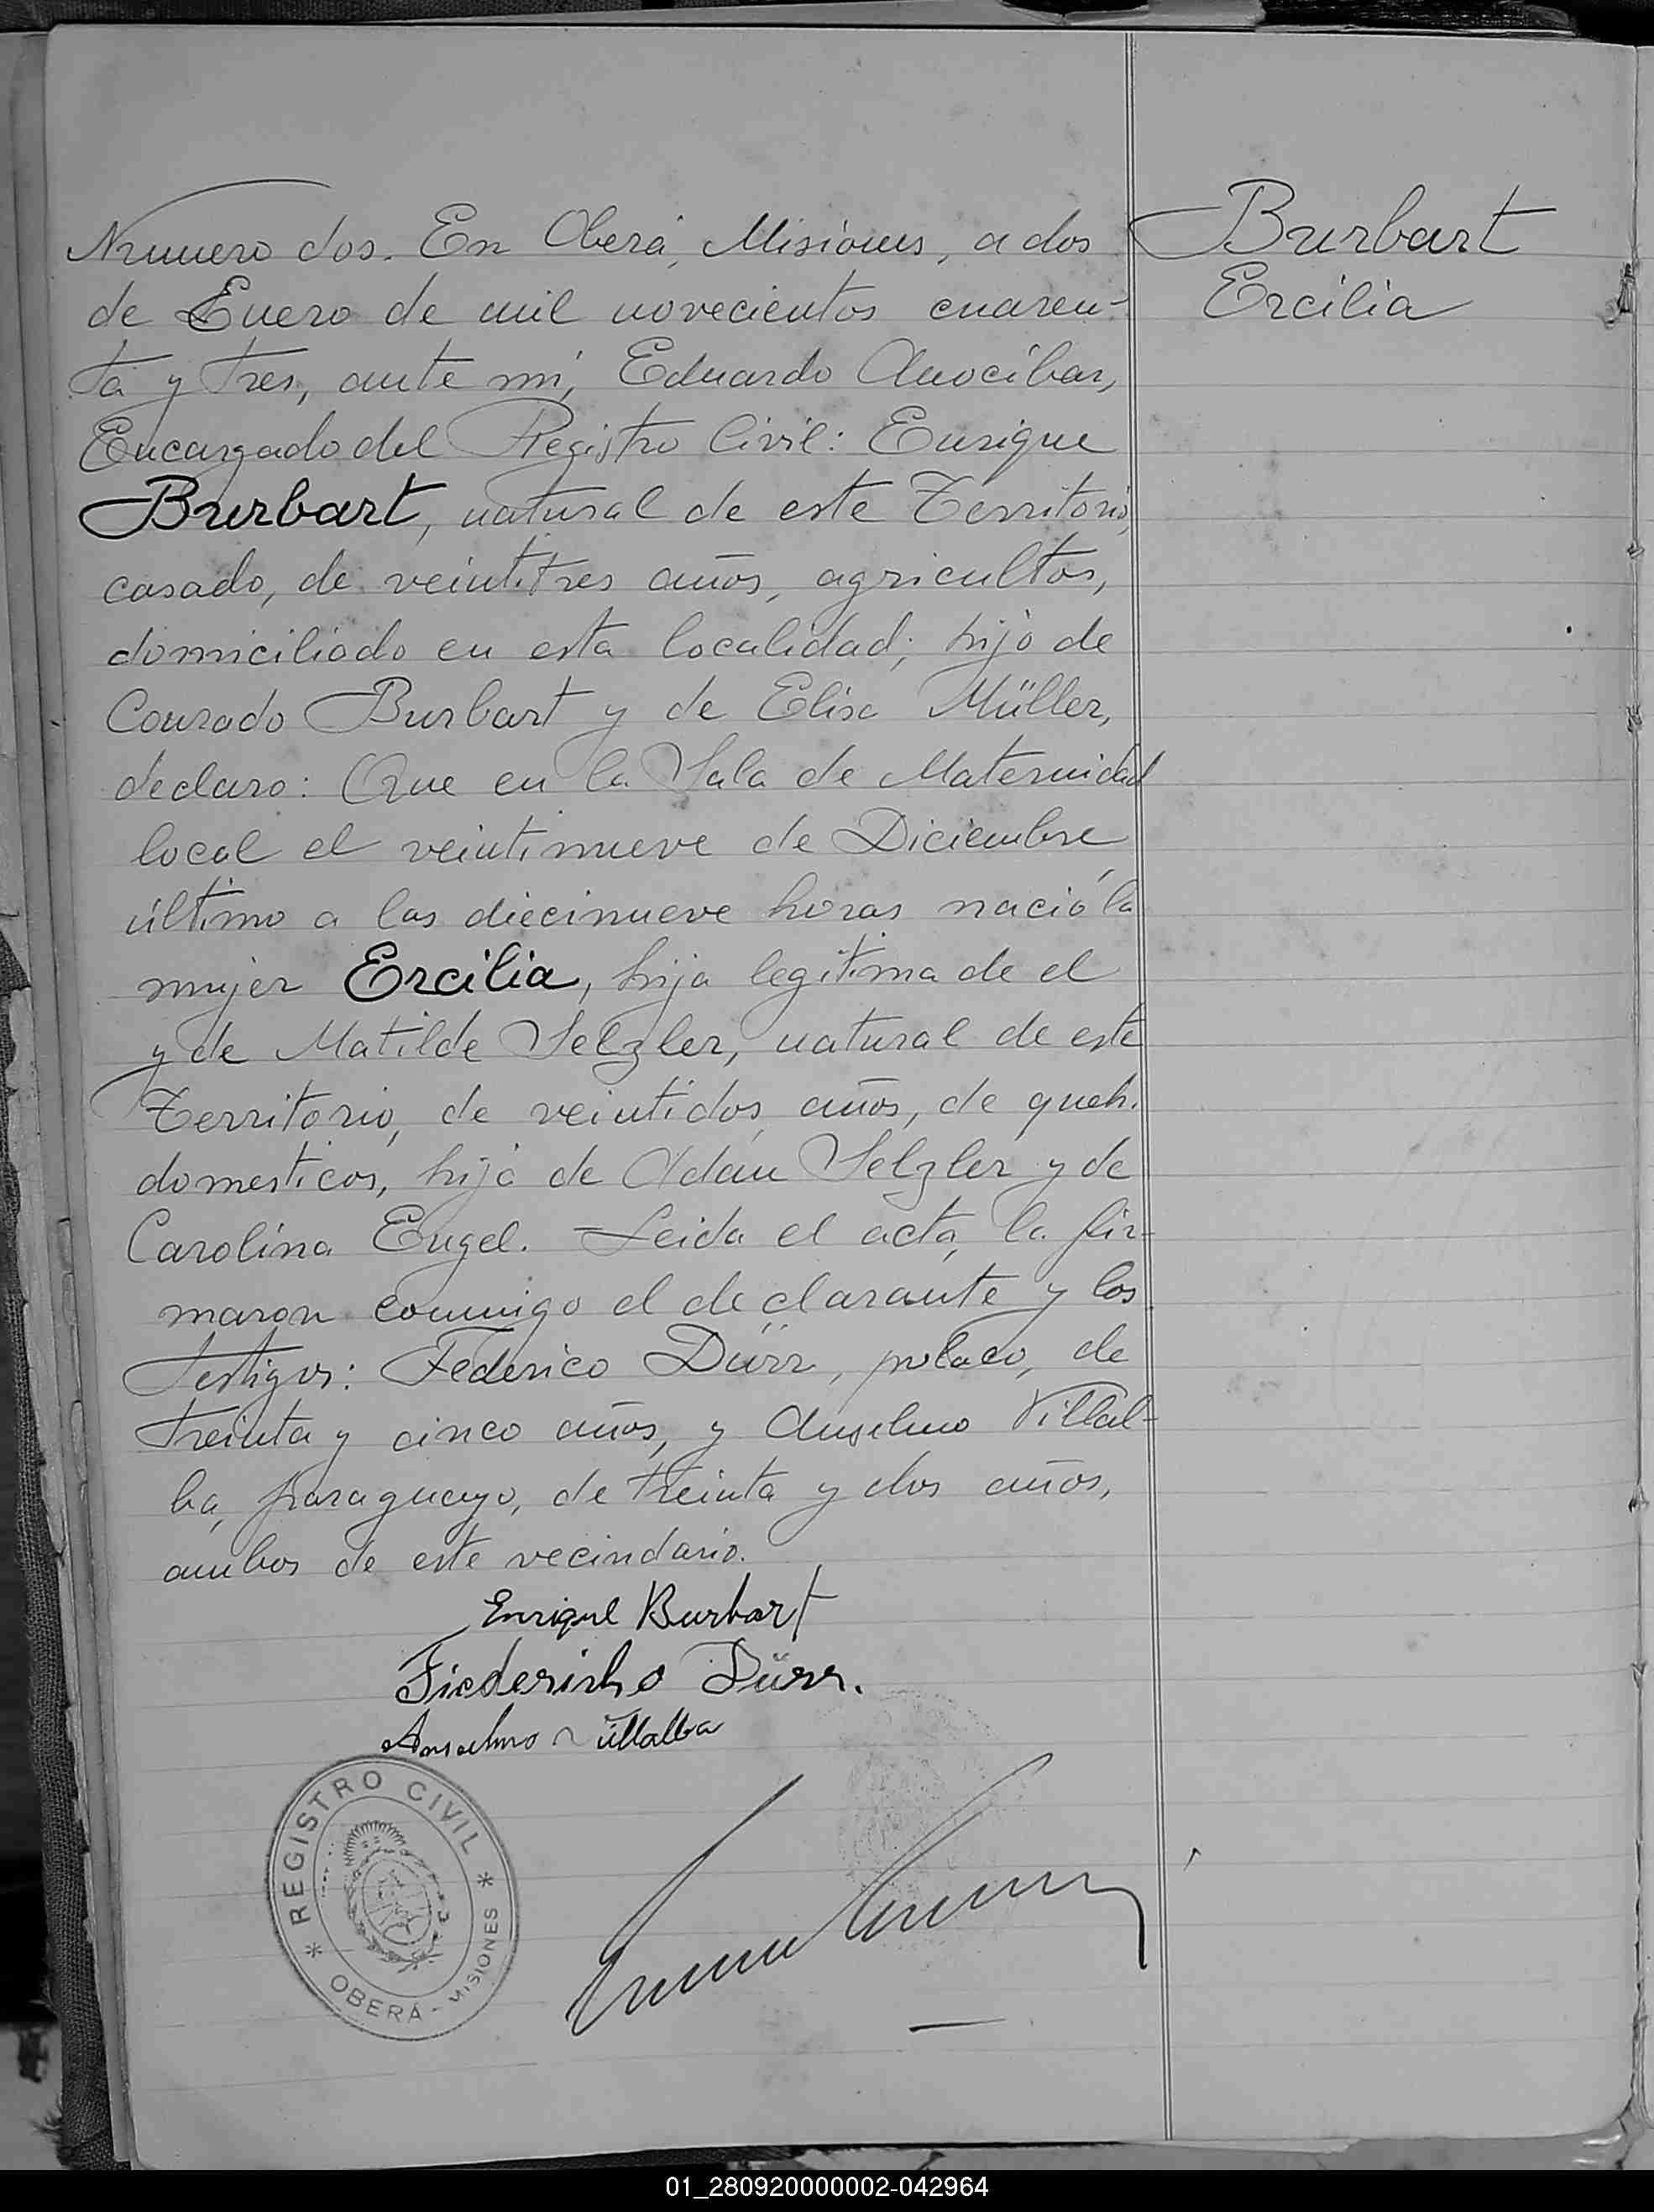 Numero dos. En Oberá, Misiones, a dos
de Enero de mil novecientos cuaren-
ta y tres, ante mí, Eduardo Anocíbar,
Encargado del Registro Civil: Enrique
Burbart, natural de este Territorio,
casado, de veintitres años, agricultor,
domiciliado en esta localidad; hijo de
Conrado Burbart y de Elisa Müller,
declaro: Que en la Sala de Maternidad
local el veintinueve de Diciembre
último a las diecinueve horas nació la
mujer Ercilia, hija legítima de el
y de Matilde Selzler, natural de este
Territorio, de veintidos años, de queh.
domesticos, hija de Adán Selzler y de
Carolina Engel. Leida el acta, la fir-
maron conmigo el declarante y los
testigos: Federico Dürr, polaco, de
treinta y cinco años, y Anselmo Villal-
ba, paraguayo, de treinta y dos años,
ambos de este vecindario.
Enrique Burbart
Fiederisho Dürr.
Anselmo Villalba
REGISTRO CIVIL
OBERÁ - MISIONES
Burbart
Ercilia
01_280920000002-042964